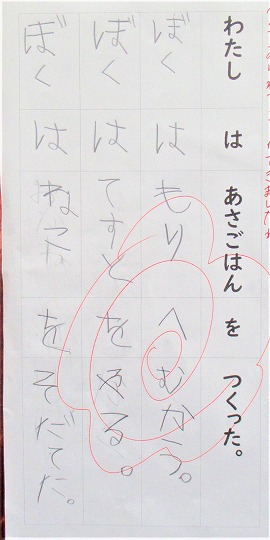 わたし は あさごはん を つくった。
ぼく は もり へ むかう。
ぼく は てすと を やる。
ぼく は を そだてた。